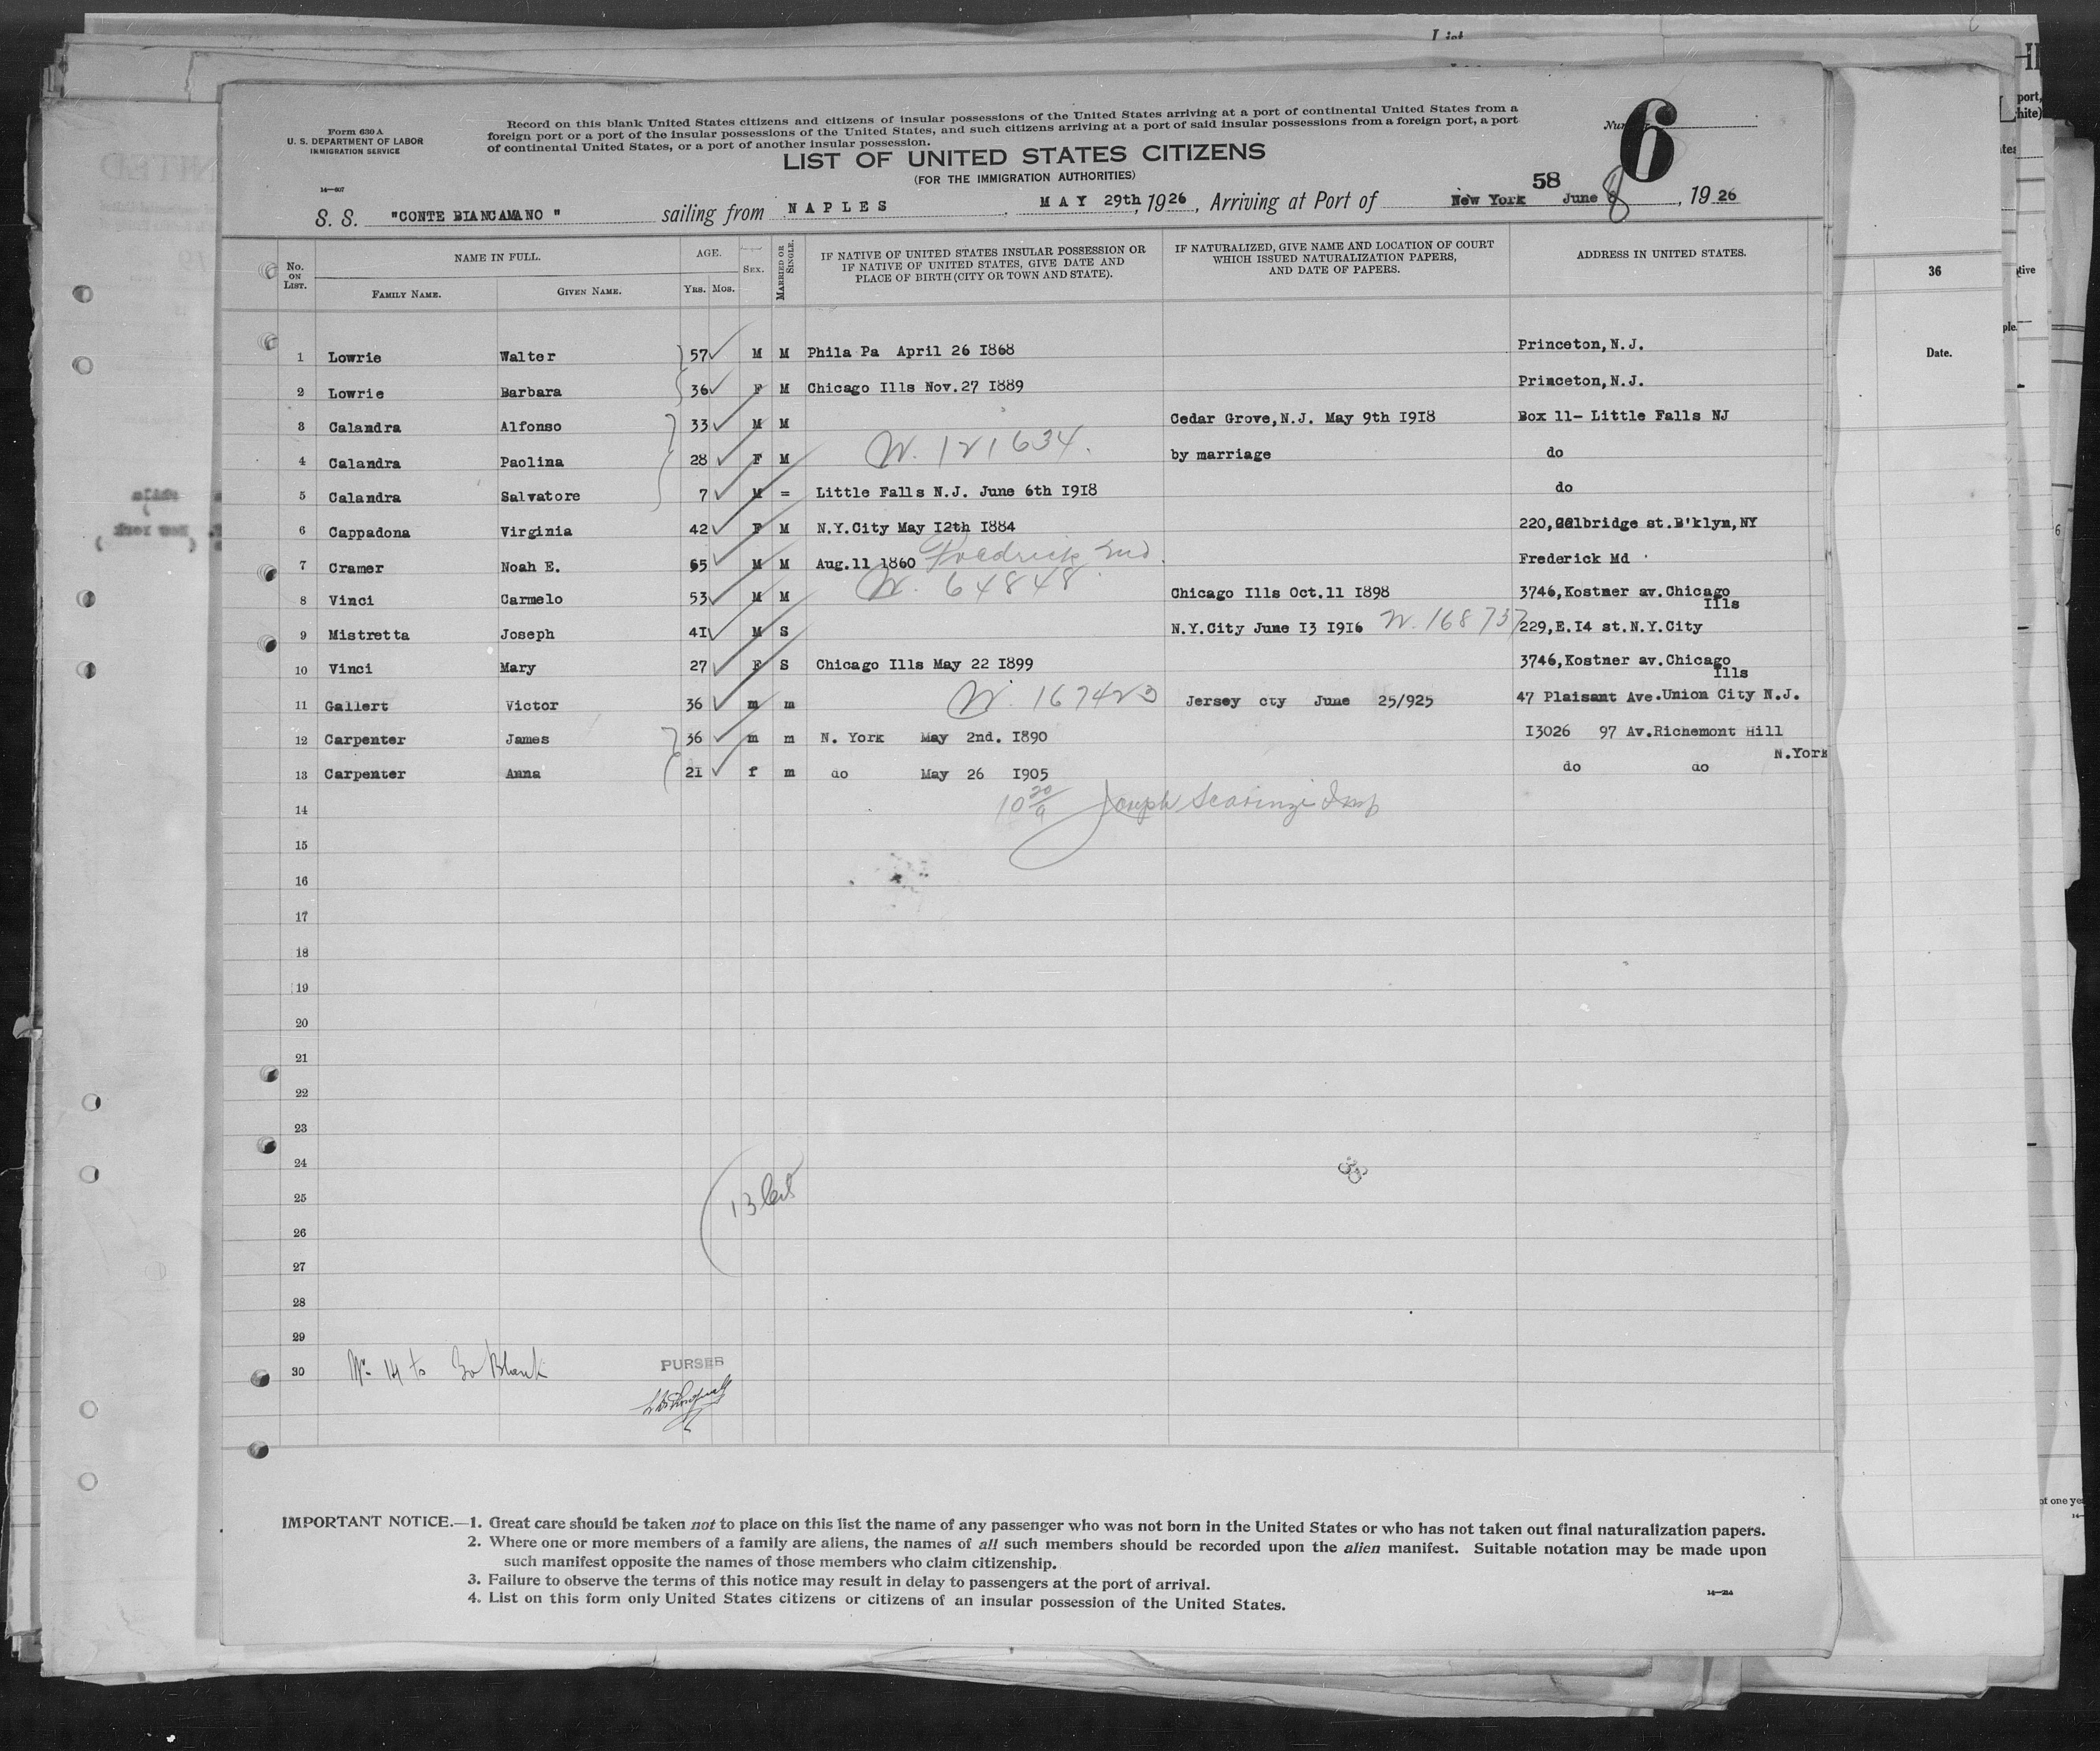 Form 630 A
U. S. DEPARTMENT OF LABOR
IMMIGRATION SERVICE
14—607
Record on this blank United States citizens and citizens of insular possessions of the United States arriving at a port of continental United States from a
foreign port or a port of the insular possessions of the United States, and such citizens arriving at a port of said insular possessions from a foreign port, a port
of continental United States, or a port of another insular possession.
6
LIST OF UNITED STATES CITIZENS
(FOR THE IMMIGRATION AUTHORITIES)
58
S. S. "CONTE BIANCAMANO " sailing from NAPLES, MAY 29th, 1926, Arriving at Port of New York June 8, 1926
No. ON LIST. NAME IN FULL. FAMILY NAME. GIVEN NAME. AGE. YRS. MOS. SEX. MARRIED OR SINGLE. IF NATIVE OF UNITED STATES INSULAR POSSESSION OR IF NATIVE OF UNITED STATES, GIVE DATE AND PLACE OF BIRTH (CITY OR TOWN AND STATE). IF NATURALIZED, GIVE NAME AND LOCATION OF COURT WHICH ISSUED NATURALIZATION PAPERS, AND DATE OF PAPERS. ADDRESS IN UNITED STATES.
1 Lowrie Walter 57 M M Phila Pa April 26 1868 Princeton, N.J.
2 Lowrie Barbara 36 F M Chicago Ills Nov. 27 1889 Princeton, N.J.
3 Calandra Alfonso 33 M M Cedar Grove, N.J. May 9th 1918 Box 11- Little Falls NJ
4 Calandra Paolina 28 F M N. 121634. by marriage do
5 Calandra Salvatore 7 M = Little Falls N.J. June 6th 1918 do
6 Cappadona Virginia 42 F M N.Y.City May 12th 1884 220, bridge st. B'klyn, NY
7 Cramer Noah E. 65 M M Aug. 11 1860 Fredrick Md. Frederick Md
8 Vinci Carmelo 53 M M N. 64848. Chicago Ills Oct. 11 1898 3746, Kostner av. Chicago
Ills
9 Mistretta Joseph 41 M S N.Y.City June 13 1916 N. 168737 229, E. 14 st. N.Y.City
10 Vinci Mary 27 F S Chicago Ills May 22 1899 3746, Kostner av. Chicago
Ills
11 Gallert Victor 36 m m N. 167423 Jersey cty June 25/925 47 Plaisant Ave. Union City N.J.
12 Carpenter James 36 m m N. York May 2nd. 1890 13026 97 Av. Richemont Hill
N. York
13 Carpenter Anna 21 f m do May 26 1905 do do
14 10 20/a Joseph Scarinzi Insp
15
16
17
18
19
20
21
22
23
24
25 13
26
27
28
29
30 Nr. 14 to 30 Blank PURSER
IMPORTANT NOTICE.—1. Great care should be taken not to place on this list the name of any passenger who was not born in the United States or who has not taken out final naturalization papers.
2. Where one or more members of a family are aliens, the names of all such members should be recorded upon the alien manifest. Suitable notation may be made upon
such manifest opposite the names of those members who claim citizenship.
3. Failure to observe the terms of this notice may result in delay to passengers at the port of arrival.
4. List on this form only United States citizens or citizens of an insular possession of the United States.
36
Date.